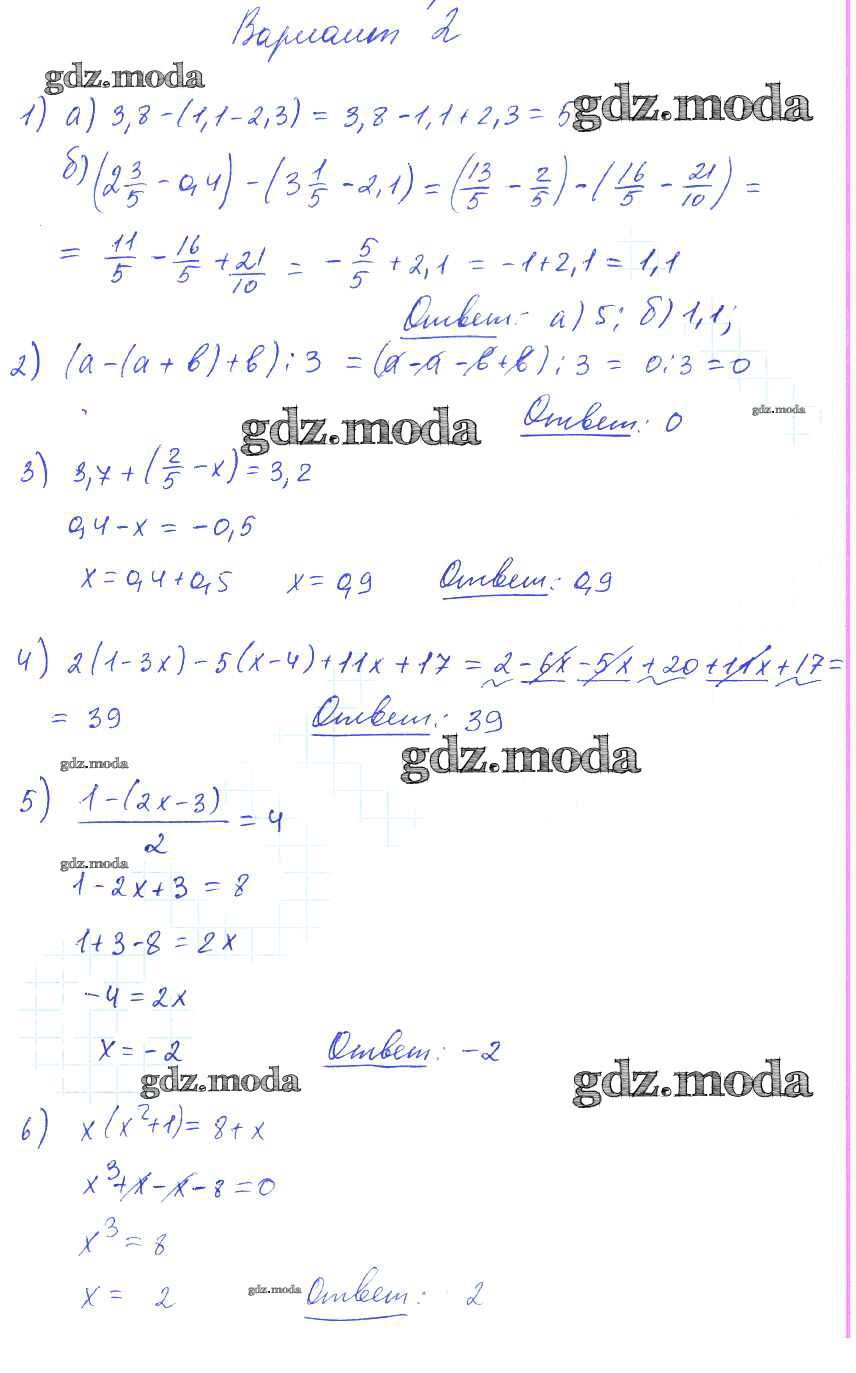 Вариант 2
gdz.moda
1) а) 3,8 - (1,1 - 2,3) = 3,8 - 1,1 + 2,3 = 5 gdz.moda
б) (2 3/5 - 0,4) - (3 1/5 - 2,1) = (13/5 - 2/5) - (16/5 - 21/10) =
= 11/5 - 16/5 + 21/10 = - 5/5 + 2,1 = -1 + 2,1 = 1,1
Ответ: а) 5; б) 1,1;
2) (а - (а + в) + в) : 3 = (а - а - в + в) : 3 = 0 : 3 = 0
gdz.moda Ответ: 0 gdz.moda
3) 3,7 + (2/5 - x) = 3,2
0,4 - x = -0,5
x = 0,4 + 0,5 x = 0,9 Ответ: 0,9
4) 2(1 - 3x) - 5(x - 4) + 11x + 17 = 2 - 6x - 5x + 20 + 11x + 17 =
= 39 Ответ: 39
gdz.moda gdz.moda
5) (1 - (2x - 3))/2 = 4
gdz.moda
1 - 2x + 3 = 8
1 + 3 - 8 = 2x
-4 = 2x
x = -2 Ответ: -2
gdz.moda gdz.moda
6) x(x² + 1) = 8 + x
x³ + x - x - 8 = 0
x³ = 8
x = 2 gdz.moda Ответ: 2